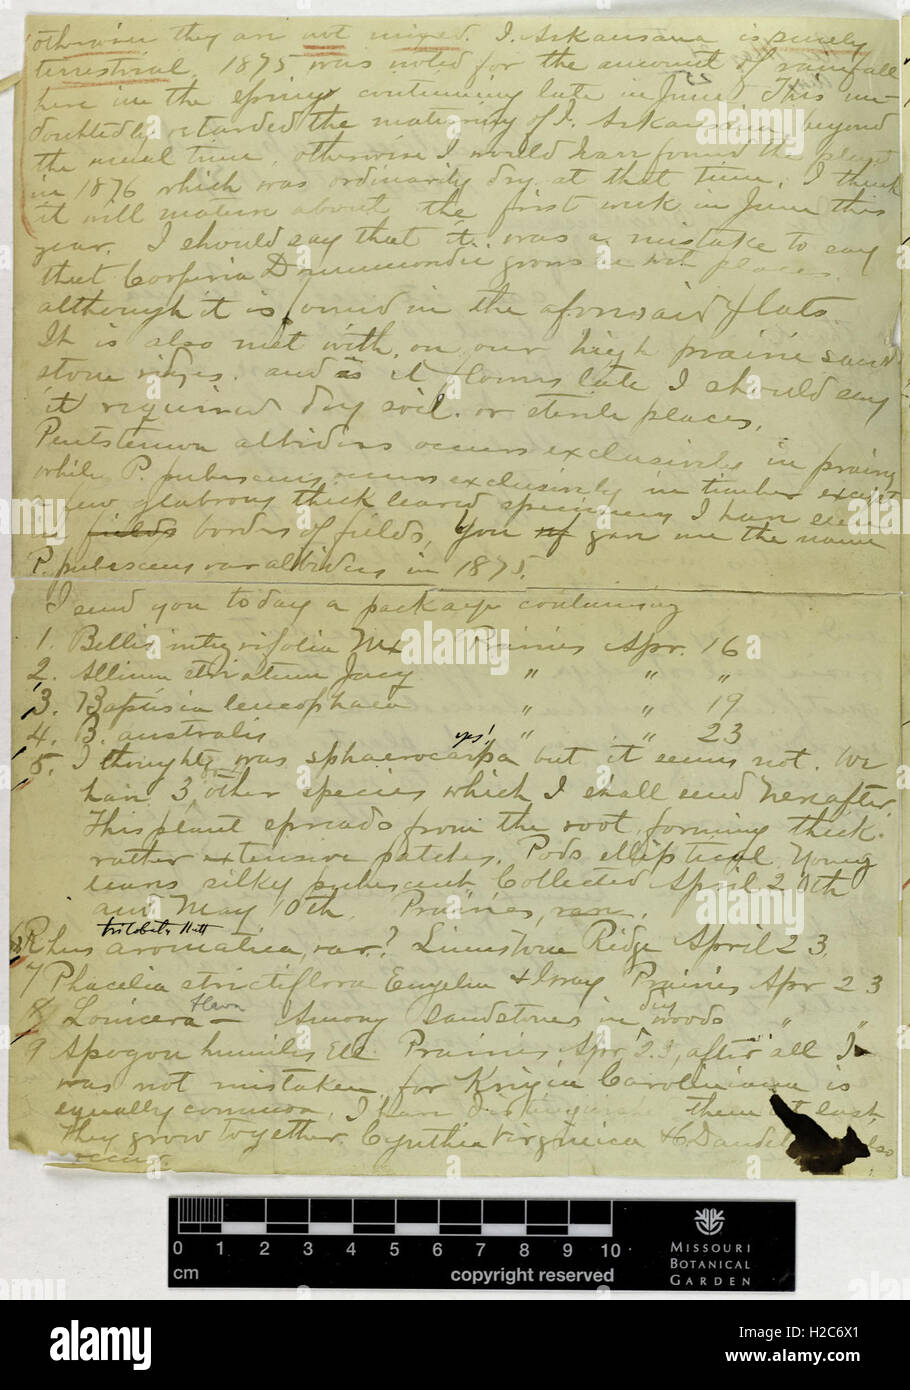 otherwise they are not mixed. I. Arkansana is purely
terrestrial. 1875 was noted for the amount of rainfall
here in the spring continuing late in June. This un-
doubtedly retarded the maturing of I. Arkansana beyond
the usual time, otherwise I would have found the plant
in 1876 which was ordinarily dry at that time. I think
it will mature about the first week in June this
year. I should say that it was a mistake to say
that Cooperia Drummondii grows in wet places
although it is found in the aforesaid flats.
It is also met with, on our high prairie sand
stone ridges. and as it blooms late I should say
it required dry soil. or sterile places.
Pentstemon albidus occurs exclusively in prairies
while P. pubescens occurs exclusively in timber except
a few glabrous thick leaved specimens I have seen
in fields borders of fields, You gave me the name
P. pubescens var albidus in 1875.
I send you today a package containing
1. Bellis integrifolia Mx Prairies Apr. 16
2. Allium striatum Jacq " " "
3. Baptisia leucophaea " " 19
4. B. australis " " 23
yes!
5. I thought was sphaerocarpa but it seems not. We
have 3 other species which I shall send hereafter.
This plant spreads from the root, forming thick
rather extensive patches. Pods elliptical. Young
leaves silky pubescent. Collected April 20th
and May 10th. Prairies, rare.
trilobata Nutt
6 Rhus aromatica, var.? Limestone Ridge April 23.
7 Phacelia strictiflora Engelm & Gray Prairies Apr 23
flava
8 Lonicera — Among sandstones in dry woods " "
9 Apogon humilis Ell. Prairies Apr 23, after all I
was not mistaken for Krigia Caroliniana is
equally common. I have distinguished them at last
They grow together. Cynthia Virginica & Dandel also
occur
0 1 2 3 4 5 6 7 8 9 10
cm
copyright reserved
MISSOURI
BOTANICAL
GARDEN
alamy
alamy
Image ID: H2C6X1
www.alamy.com